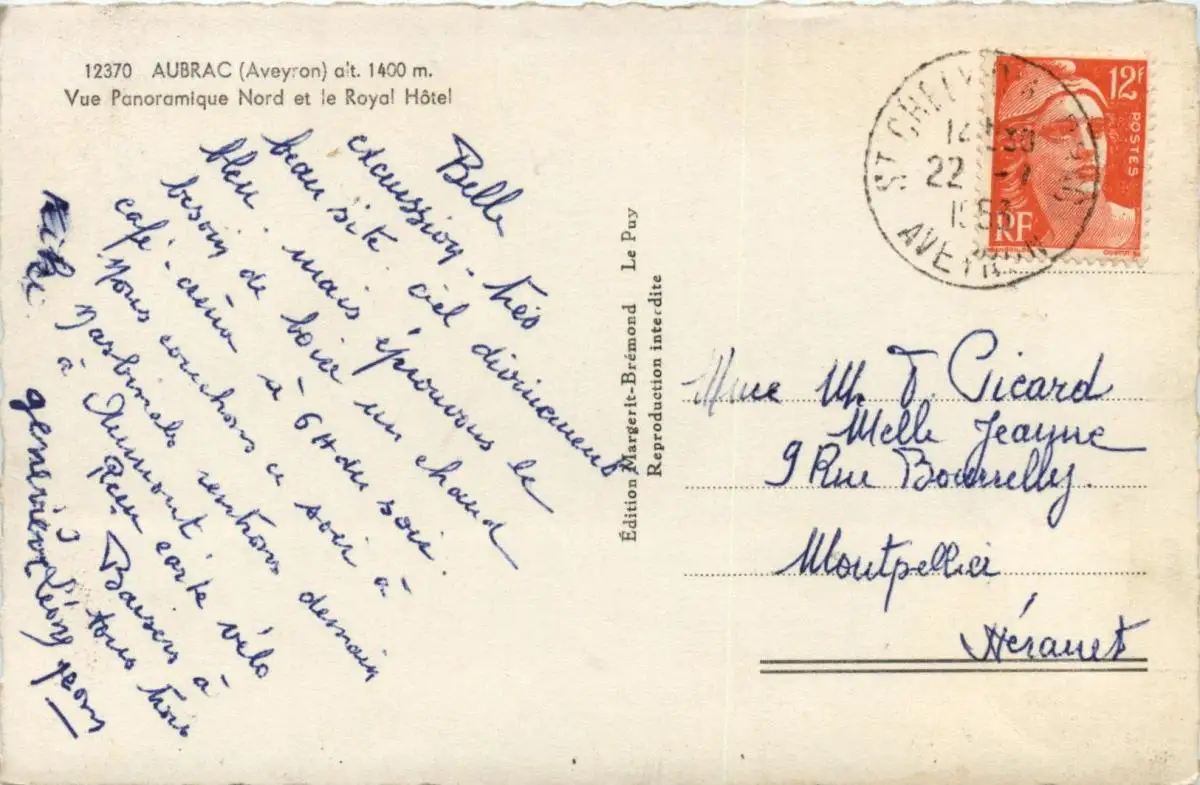 12370 AUBRAC (Aveyron) alt. 1400 m.
Vue Panoramique Nord et le Royal Hôtel
Belle
excursion - très
beau site, ciel divinement
bleu, mais éprouvons le
besoin de boire un chaud
café. à 6H du soir.
Nous couchons ce soir à
Nasbinals rentrons demain
à Aumont.
Reçu carte vélo
Baisers à
tous trois
geneviève Léon Jeany
Édition Margerit-Brémond Le Puy
Reproduction interdite
ST CHELY D'AUBRAC
22 -7
1953
AVEYRON
12F
POSTES
RF
Mme Mr F. Picard
Melle Jeayne
9 Rue Bourrelly.
Montpellier
Hérault